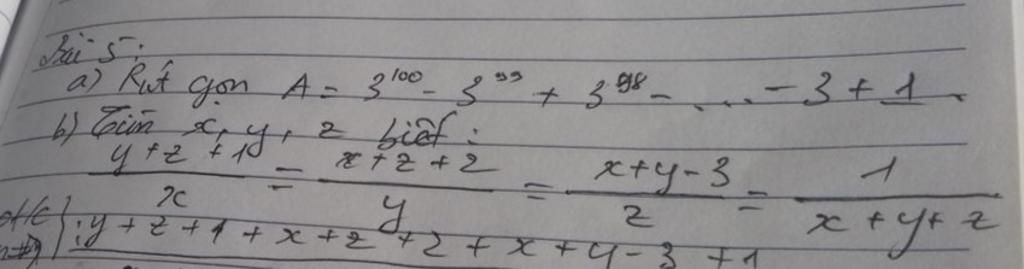 Bài 5:
a) Rút gọn A = 3^100 - 3^99 + 3^98 - .... - 3 + 1.
b) Tìm x, y, z biết:
(y+z+1)/x = (x+z+2)/y = (x+y-3)/z = 1/(x+y+z)
: y+z+1+x+z+2+x+y-3+1